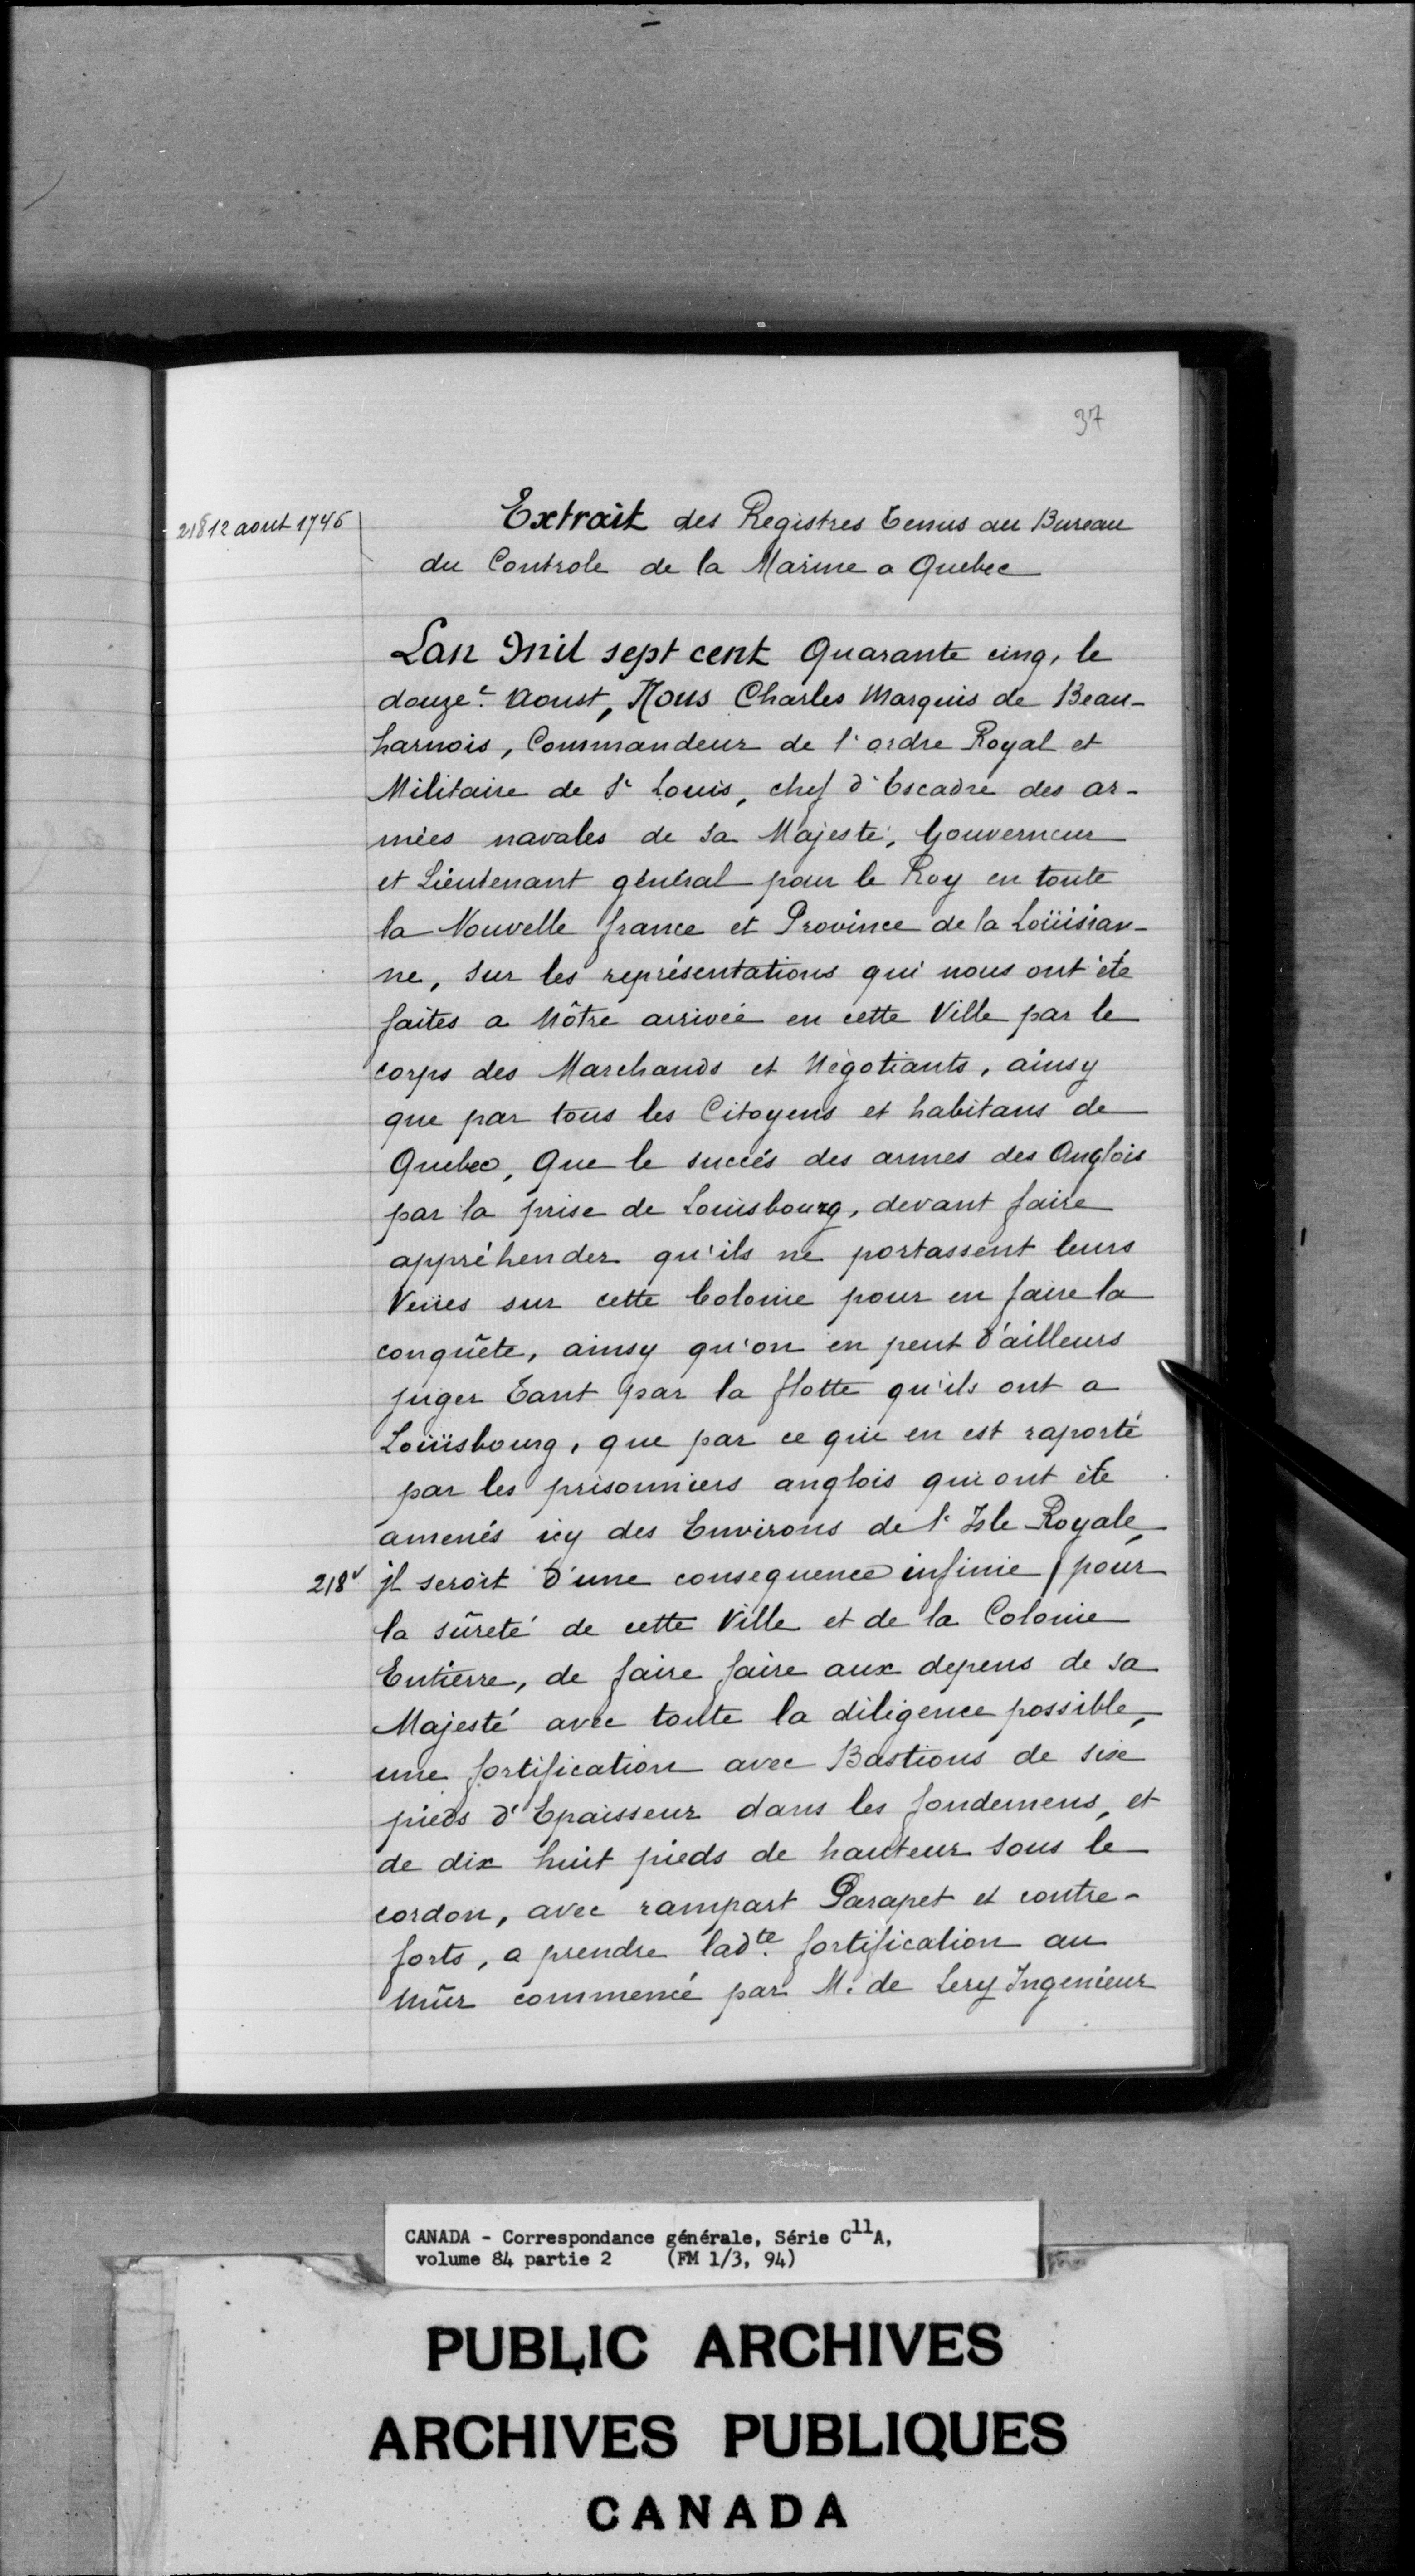 37
218 12 aout 1745
Extrait des Registres tenus au Bureau
du Controle de la Marine a Quebec
Lan Mil sept cent Quarante cinq, le
douze.e Aoust, Nous Charles Marquis de Beau-
harnois, Commandeur de l'ordre Royal et
Militaire de St Louis, chef d'Escadre des ar-
mées navales de sa Majesté, Gouverneur
et Lieutenant général pour le Roy en toute
la Nouvelle france et Province de la Loüisian-
ne, sur les représentations qui nous ont été
faites a Nôtre arrivée en cette Ville par le
corps des Marchands et Négotiants, ainsy
que par tous les Citoyens et habitans de
Quebec, Que le succés des armes des Anglois
par la prise de Louisbourg, devant faire
appréhender qu'ils ne portassent leurs
Veües sur cette Colonie pour en faire la
conquête, ainsy qu'on en peut d'ailleurs
juger tant par la flotte qu'ils ont a
Loüisbourg, que par ce qui en est raporté
par les prisonniers anglois qui ont été
amenés icy des Environs de l'Isle Royale,
218v jl seroit d'une consequence infinie / pour
la sûreté de cette Ville et de la Colonie
Entierre, de faire faire aux depens de sa
Majesté avec toute la diligence possible,
une fortification avec Bastions de six
pieds d'Epaisseur dans les fondemens, et
de dix huit pieds de hauteur sous le
cordon, avec rampart Parapet et contre-
forts, a prendre ladte. fortification au
Mûr commencé par M. de Lery Ingenieur
CANADA - Correspondance générale, Série C11A,
volume 84 partie 2 (FM 1/3, 94)
PUBLIC ARCHIVES
ARCHIVES PUBLIQUES
CANADA